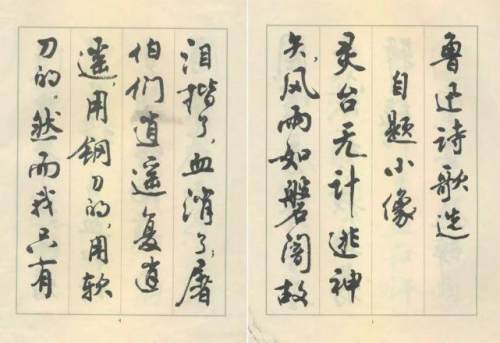 鲁迅詩歌选
自题小像
灵台无计逃神
矢,风雨如磐闇故
泪揩了,血消了;屠
伯们逍遥复逍
遥,用鋼刀的,用软
刀的,然而我只有